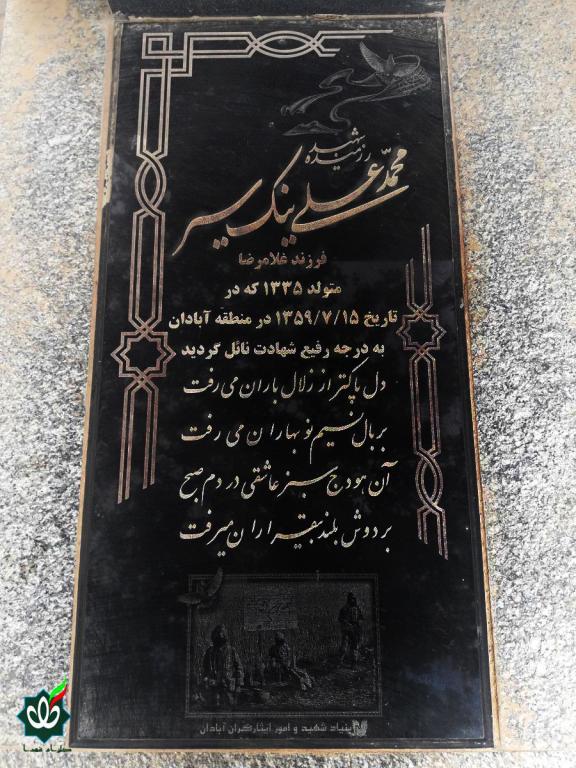 شهید
رزمنده
محمد علی نیک سیر
فرزند غلامرضا
متولد ۱۳۳۵ که در
تاریخ ۱۳۵۹/۷/۱۵ در منطقه آبادان
به درجه رفیع شهادت نائل گردید
دل پاکتر از زلال باران می رفت
بر بال نسیم نو بهاران می رفت
آن هودج سبز عاشقی در دم صبح
بر دوش بلند بیقراران میرفت
بنیاد شهید و امور ایثارگران آبادان